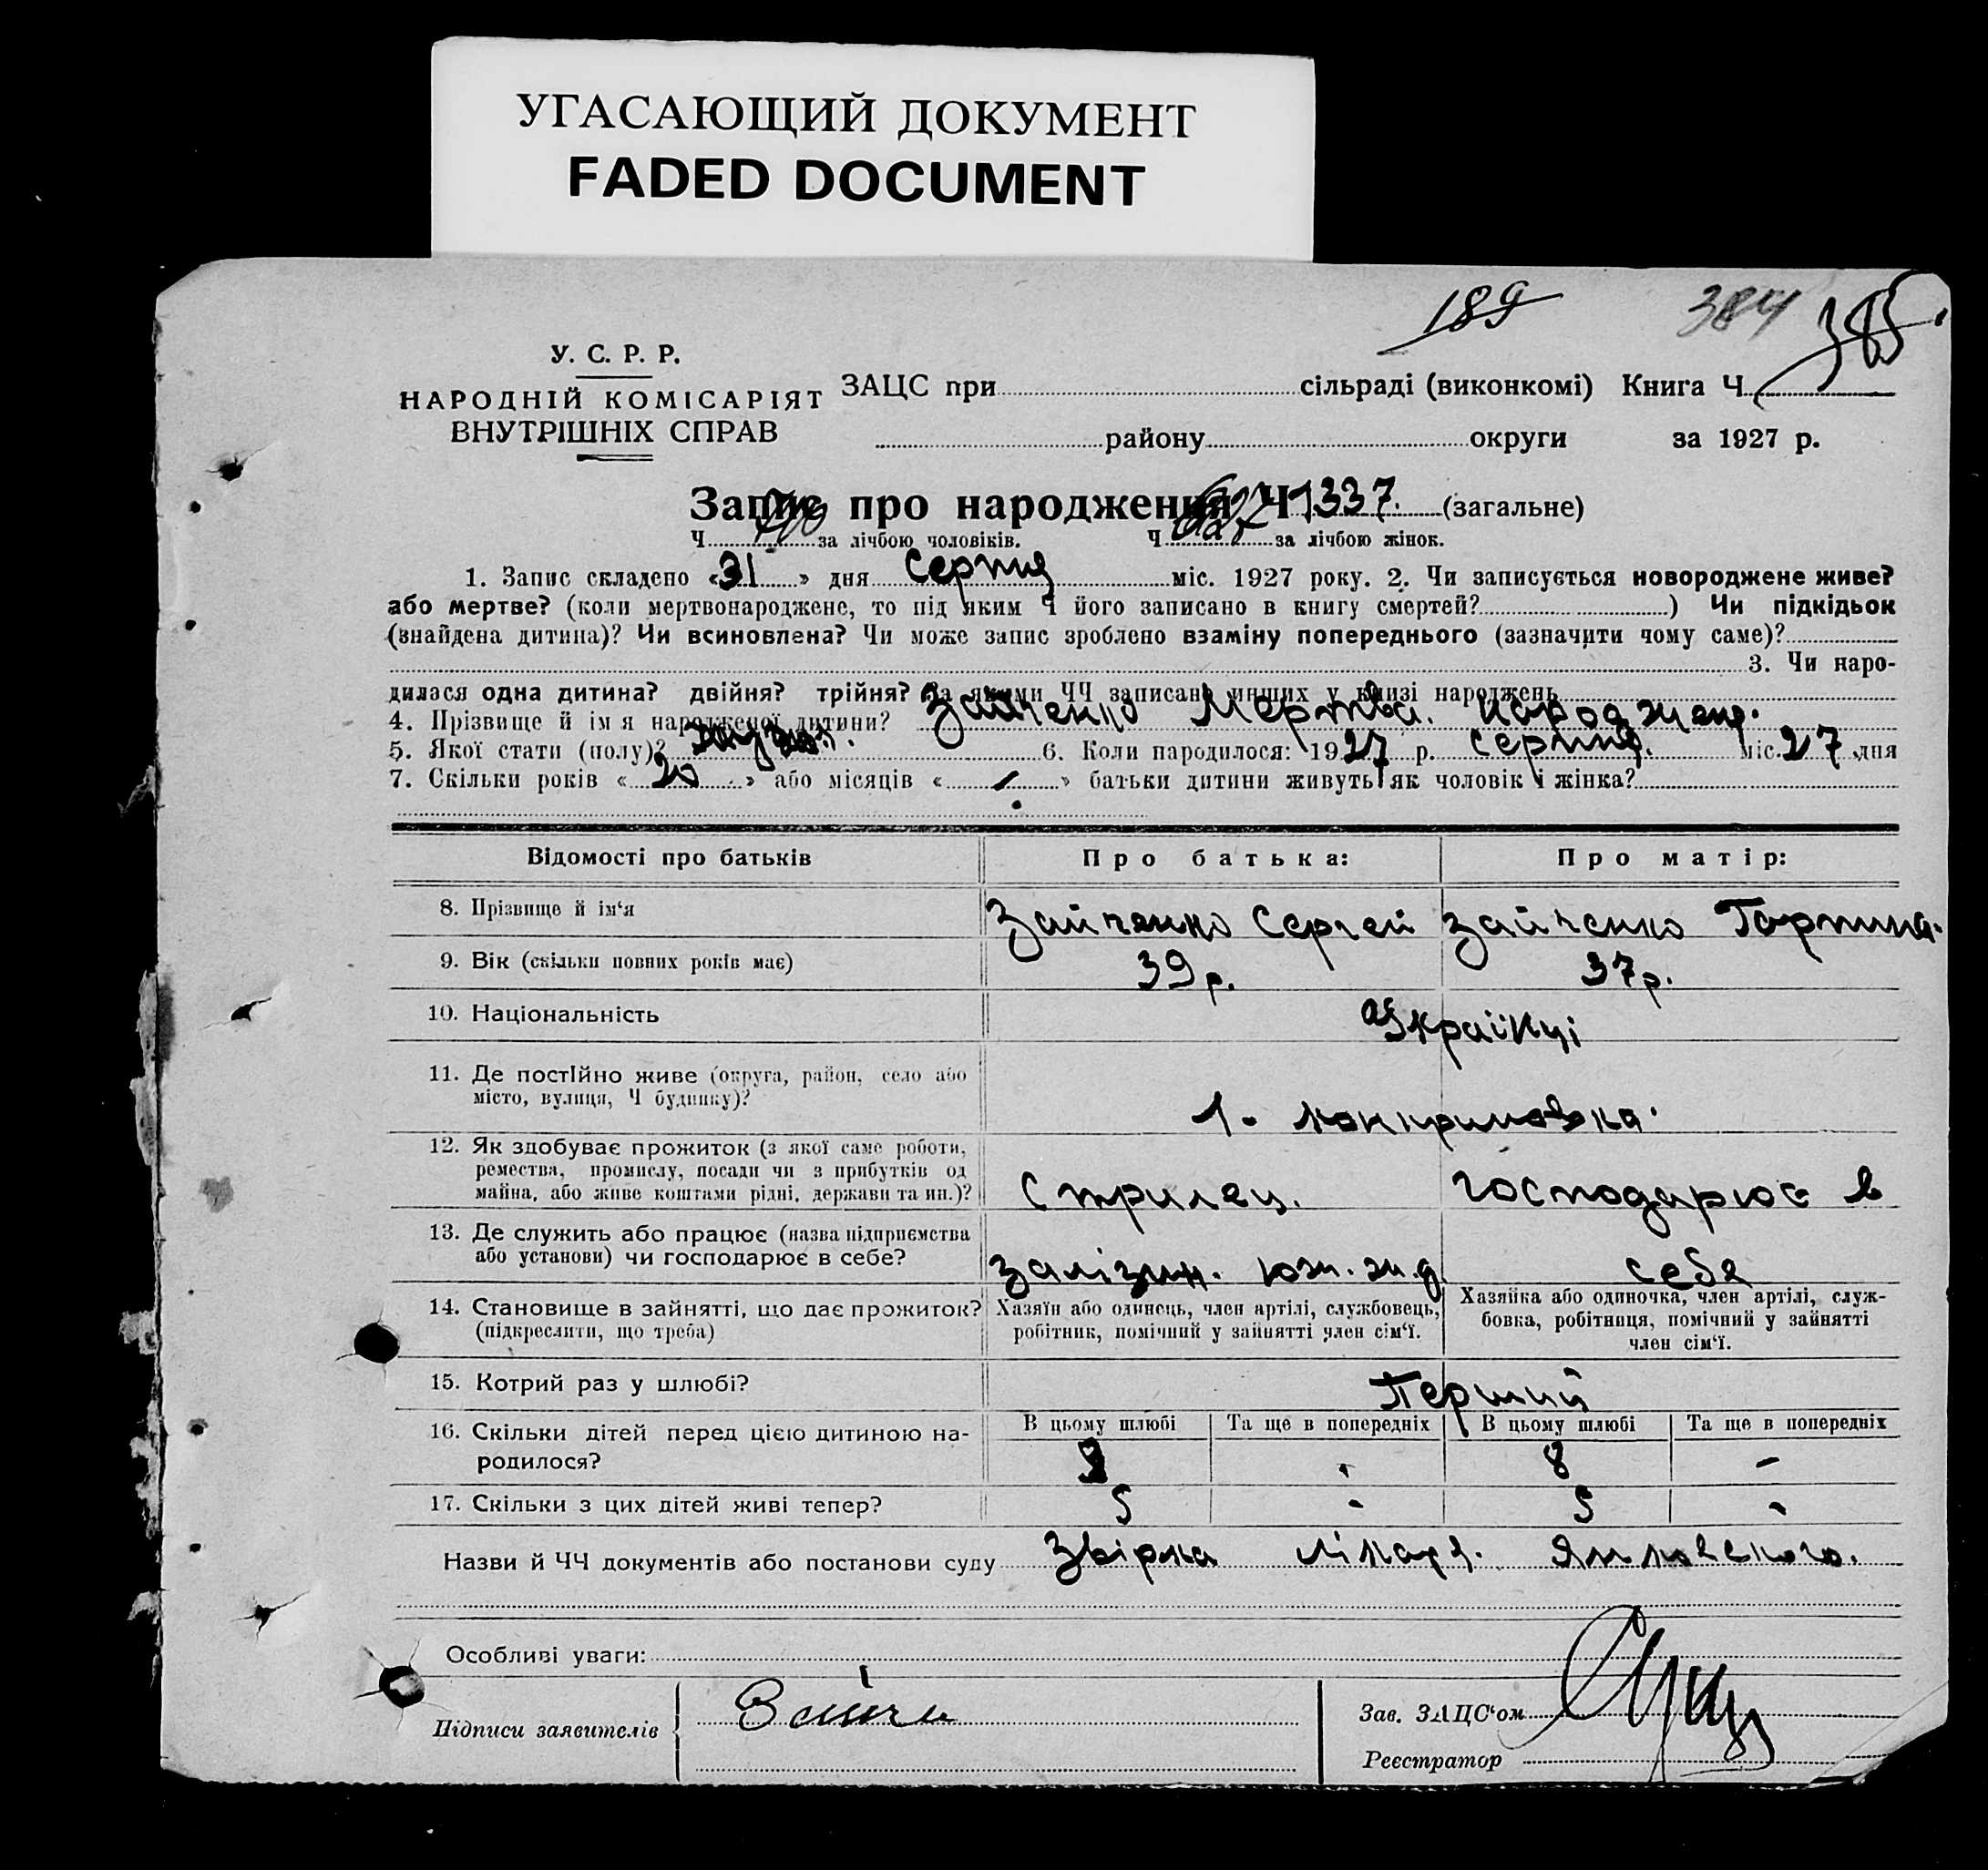 УГАСАЮЩИЙ ДОКУМЕНТ
FADED DOCUMENT
189 384 385
У. С. Р. Р.
НАРОДНІЙ КОМІСАРІЯТ
ВНУТРІШНІХ СПРАВ
ЗАЦС при сільраді (виконкомі) Книга Ч.
району округи за 1927 р.
Запис про народження Ч 1337. (загальне)
Ч за лічбою чоловіків. Ч за лічбою жінок.
1. Запис складено «31» дня серпня міс. 1927 року. 2. Чи записується новороджене живе?
або мертве? (коли мертвонароджене, то під яким Ч його записано в книгу смертей? ) Чи підкідьок
(знайдена дитина)? Чи всиновлена? Чи може запис зроблено взаміну попереднього (зазначити чому саме)?
3. Чи наро-
дилася одна дитина? двійня? трійня? За якими ЧЧ записано инших у книзі народжень
4. Прізвище й ім я народженої дитини? Зайченко Мертва. народжене.
5. Якої стати (полу)? 6. Коли народилося: 1927 р. серпня. міс. 27 дня
7. Скільки років «20» або місяців «-» батьки дитини живуть як чоловік і жінка?
Відомості про батьків Про батька: Про матір:
8. Прізвище й ім'я Зайченко Сергей Зайченко Горпина.
9. Вік (скільки повних років має) 39 р. 37 р.
10. Національність Українці
11. Де постійно живе (округа, район, село або
місто, вулиця, Ч будинку)?
12. Як здобуває прожиток (з якої саме роботи,
ремества, промислу, посади чи з прибутків од
майна, або живе коштами рідні, держави та ин.)? Стрилец. господарює в
13. Де служить або працює (назва підприємства
або установи) чи господарює в себе? залізн. юж. ж.д. себе
14. Становище в зайнятті, що дає прожиток?
(підкреслити, що треба)
Хазяїн або одинець, член артілі, службовець,
робітник, помічний у зайнятті член сім'ї.
Хазяйка або одиночка, член артілі, служ-
бовка, робітниця, помічний у зайнятті
член сім'ї.
15. Котрий раз у шлюбі? Перший
16. Скільки дітей перед цією дитиною на-
родилося?
В цьому шлюбі Та ще в попередніх В цьому шлюбі Та ще в попередніх
8 - 8 -
17. Скільки з цих дітей живі тепер? 5 - 5 -
Назви й ЧЧ документів або постанови суду лікаря
Особливі уваги:
Підписи заявителів
Зав. ЗАЦС'ом
Реєстратор